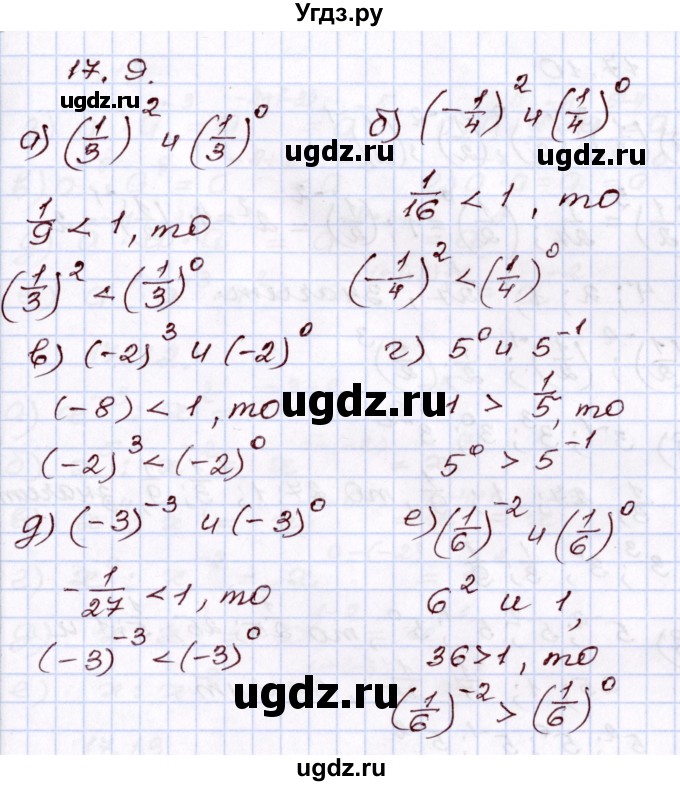 Угдз.ру
17. 9.
ugdz.ru
а) (1/3)² и (1/3)⁰
б) (-1/4)² и (1/4)⁰
ugdz.ru
ugdz.ru
1/9 < 1, то
1/16 < 1, то
(1/3)² < (1/3)⁰
(-1/4)² < (1/4)⁰
в) (-2)³ и (-2)⁰
г) 5⁰ и 5⁻¹
(-8) < 1, то
1 > 1/5, то
ugdz.ru
(-2)³ < (-2)⁰
5⁰ > 5⁻¹
д) (-3)⁻³ и (-3)⁰
е) (1/6)⁻² и (1/6)⁰
-1/27 < 1, то
6² и 1,
(-3)⁻³ < (-3)⁰
36 > 1, то
ugdz.ru
(1/6)⁻² > (1/6)⁰
ugdz.ru